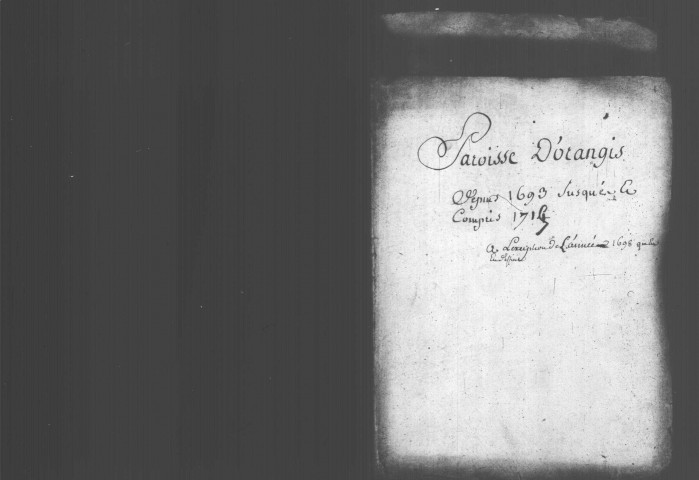 Paroisse D'orangis
Depuis 1693 Jusques &c
Compris 1714
a L'exception De L'année 1698